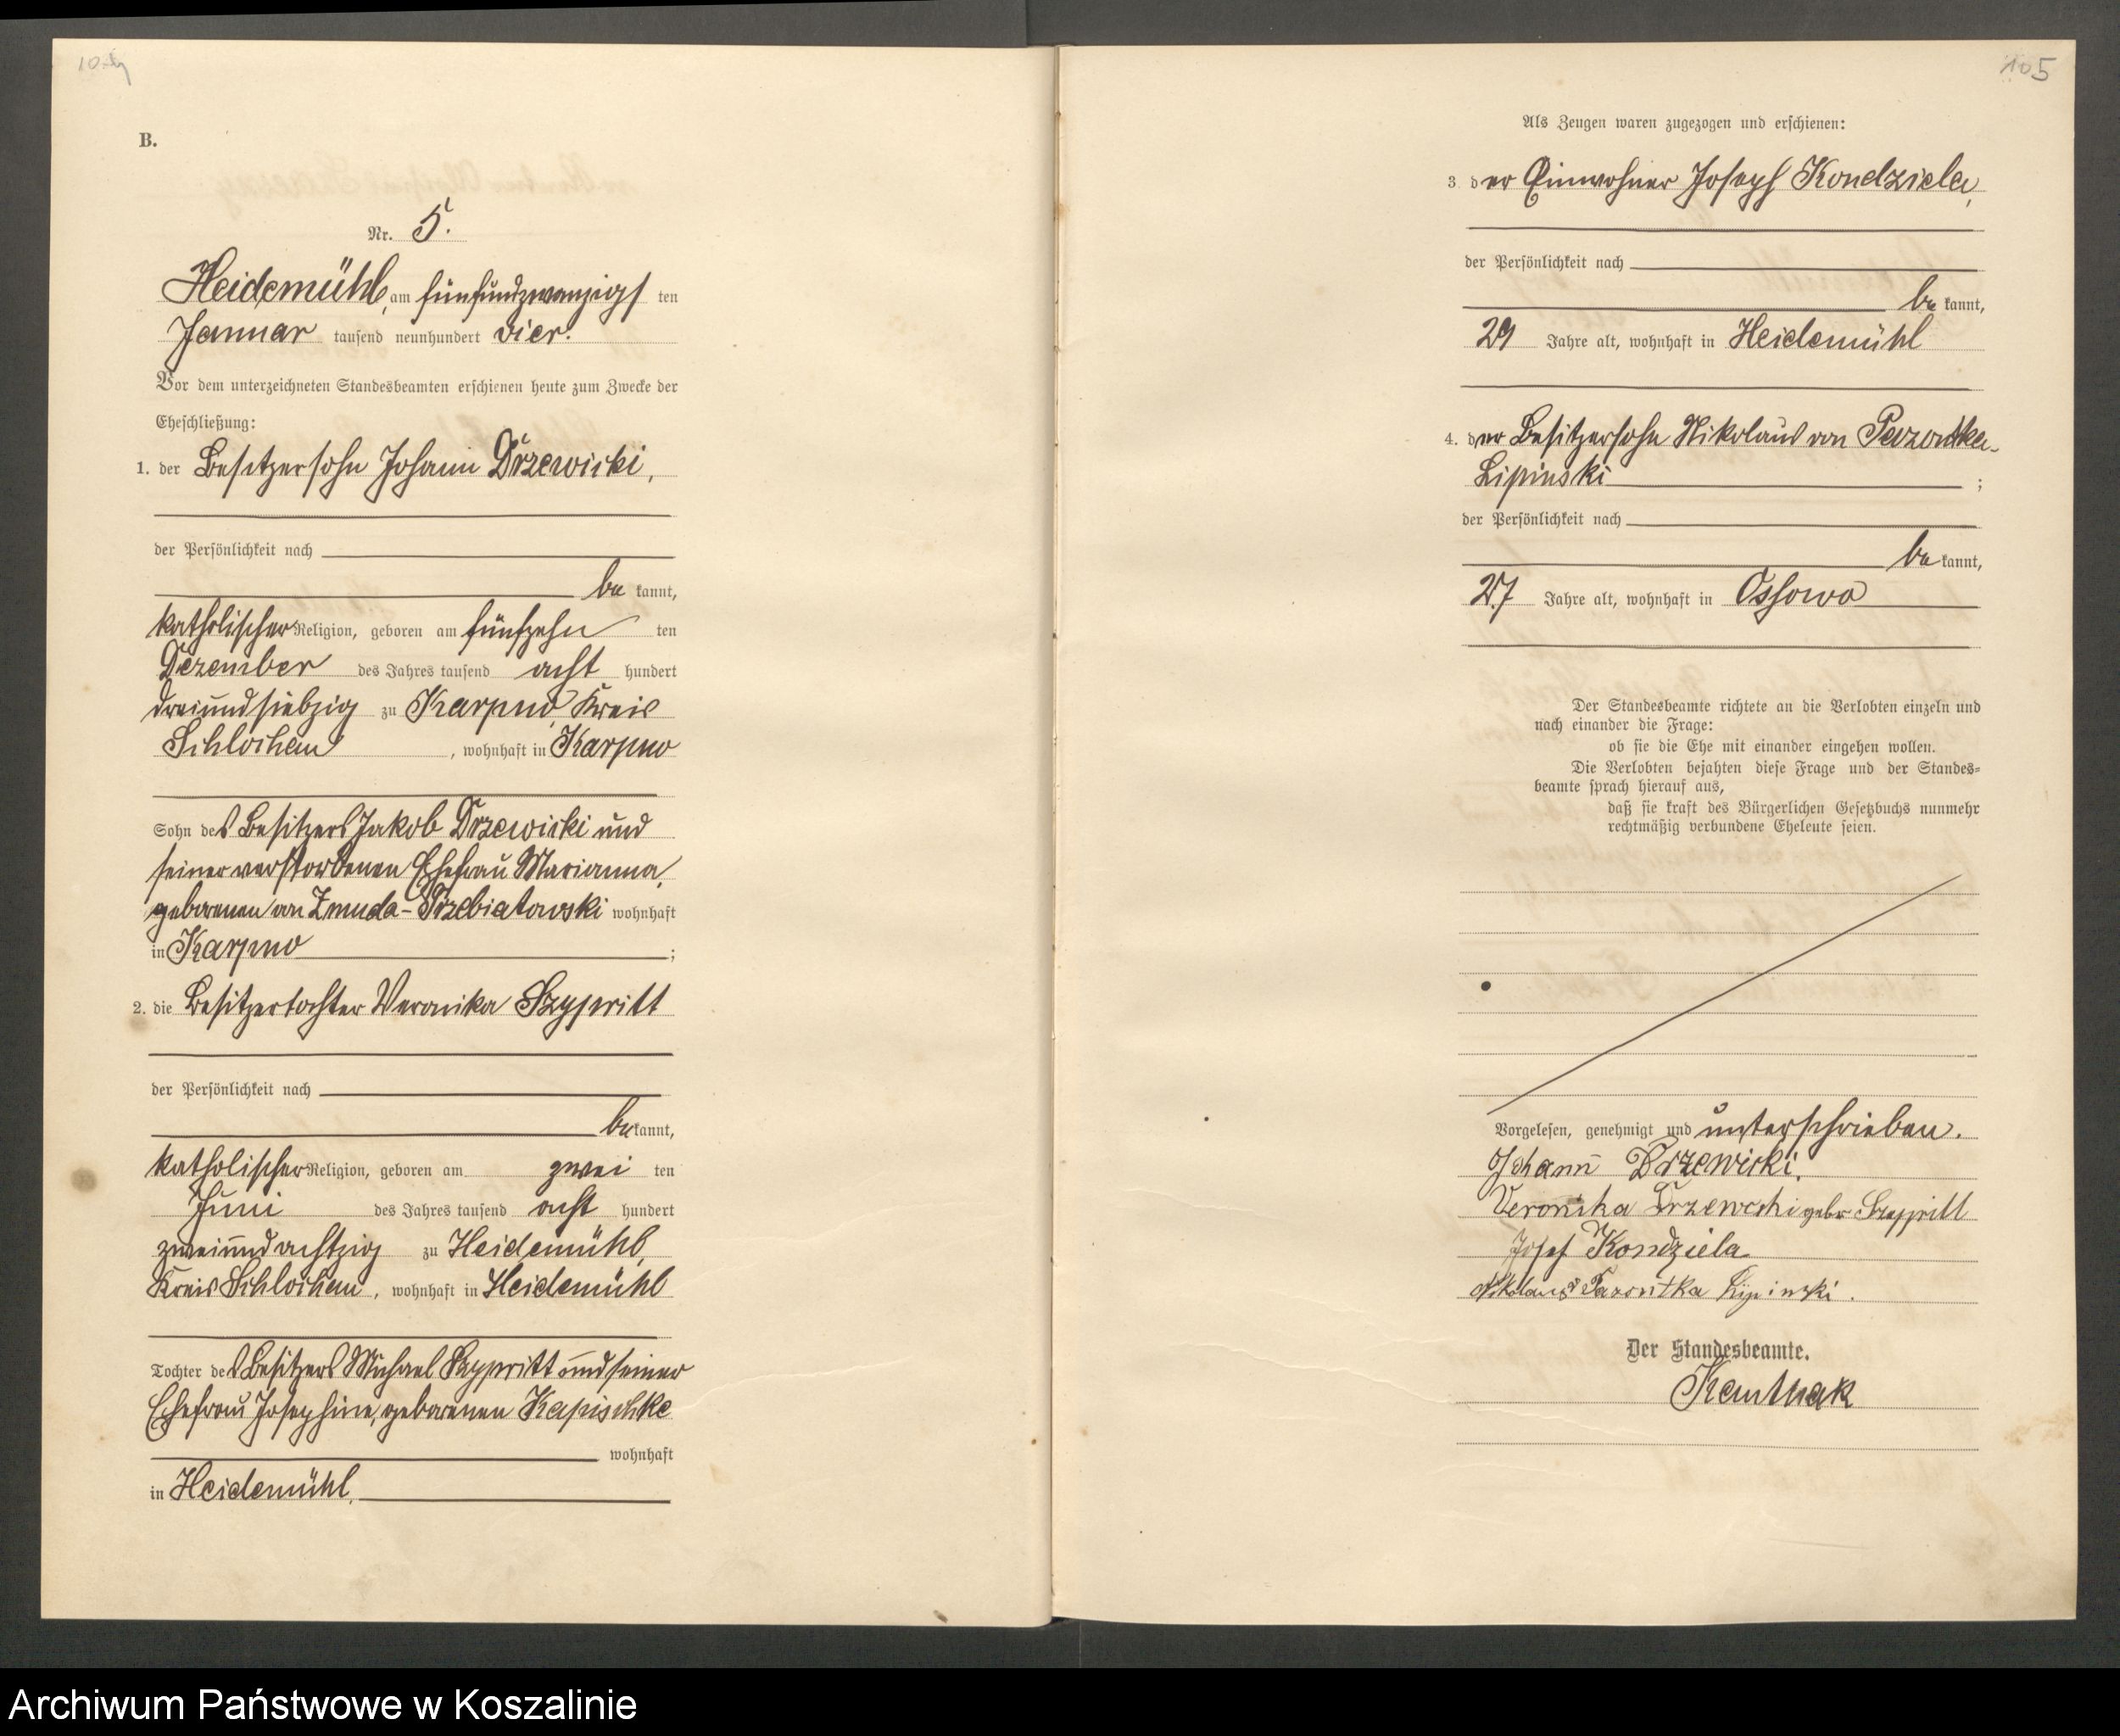 B.
Nr. 5.
Heidemühl, am fünfundzwanzigsten
Januar tausend neunhundert vier.
Vor dem unterzeichneten Standesbeamten erschienen heute zum Zwecke der
Eheschließung:
1. der Besitzersohn Johann Drzewicki,
der Persönlichkeit nach
bekannt,
katholischer Religion, geboren am fünfzehnten
Dezember des Jahres tausend achthundert
dreiundsiebzig zu Karpno, Kreis
Schlochau, wohnhaft in Karpno
Sohn des Besitzers Jakob Drzewicki und
seiner verstorbenen Ehefrau Marianna,
geborenen von Zmuda-Trzebiatowski wohnhaft
in Karpno;
2. die Besitzertochter Veronika Szypritt
der Persönlichkeit nach
bekannt,
katholischer Religion, geboren am zweiten
Juni des Jahres tausend achthundert
zweiundachtzig zu Heidemühl,
Kreis Schlochau, wohnhaft in Heidemühl
Tochter des Besitzers Michael Szypritt und seiner
Ehefrau Josephine, geborenen Kapischke
wohnhaft
in Heidemühl.
105
Als Zeugen waren zugezogen und erschienen:
3. der Einwohner Joseph Kondziela,
der Persönlichkeit nach
bekannt,
29 Jahre alt, wohnhaft in Heidemühl
4. der Besitzersohn Nikolaus von Pazontka-
Lipinski;
der Persönlichkeit nach
bekannt,
27 Jahre alt, wohnhaft in Ossowo
Der Standesbeamte richtete an die Verlobten einzeln und
nach einander die Frage:
ob sie die Ehe mit einander eingehen wollen.
Die Verlobten bejahten diese Frage und der Standes=
beamte sprach hierauf aus,
daß sie kraft des Bürgerlichen Gesetzbuchs nunmehr
rechtmäßig verbundene Eheleute seien.
Vorgelesen, genehmigt und unterschrieben.
Johann Drzewicki.
Veronika geb. Szypritt
Josef Kondziela
Nikolaus Pazontka Lipinski.
Der Standesbeamte.
Archiwum Państwowe w Koszalinie